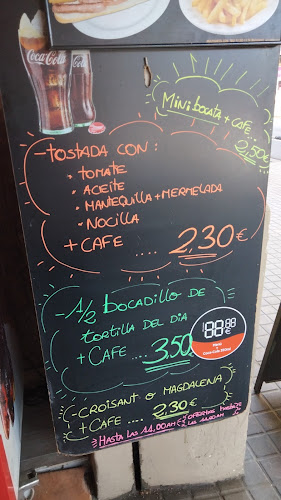 Coca-Cola
Mini bocata + cafe
2,50€
- TOSTADA CON:
• TOMATE
• ACEITE
• MANTEQUILLA + MERMELADA
• NOCILLA
+ CAFE .... 2,30€
- 1/2 BOCADILLO DE
TORTILLA DEL DIA
+ CAFE... 3.50
- CROISANT O MAGDALENA
+ CAFE ...... 2,30€
HASTA LAS 11,00AM